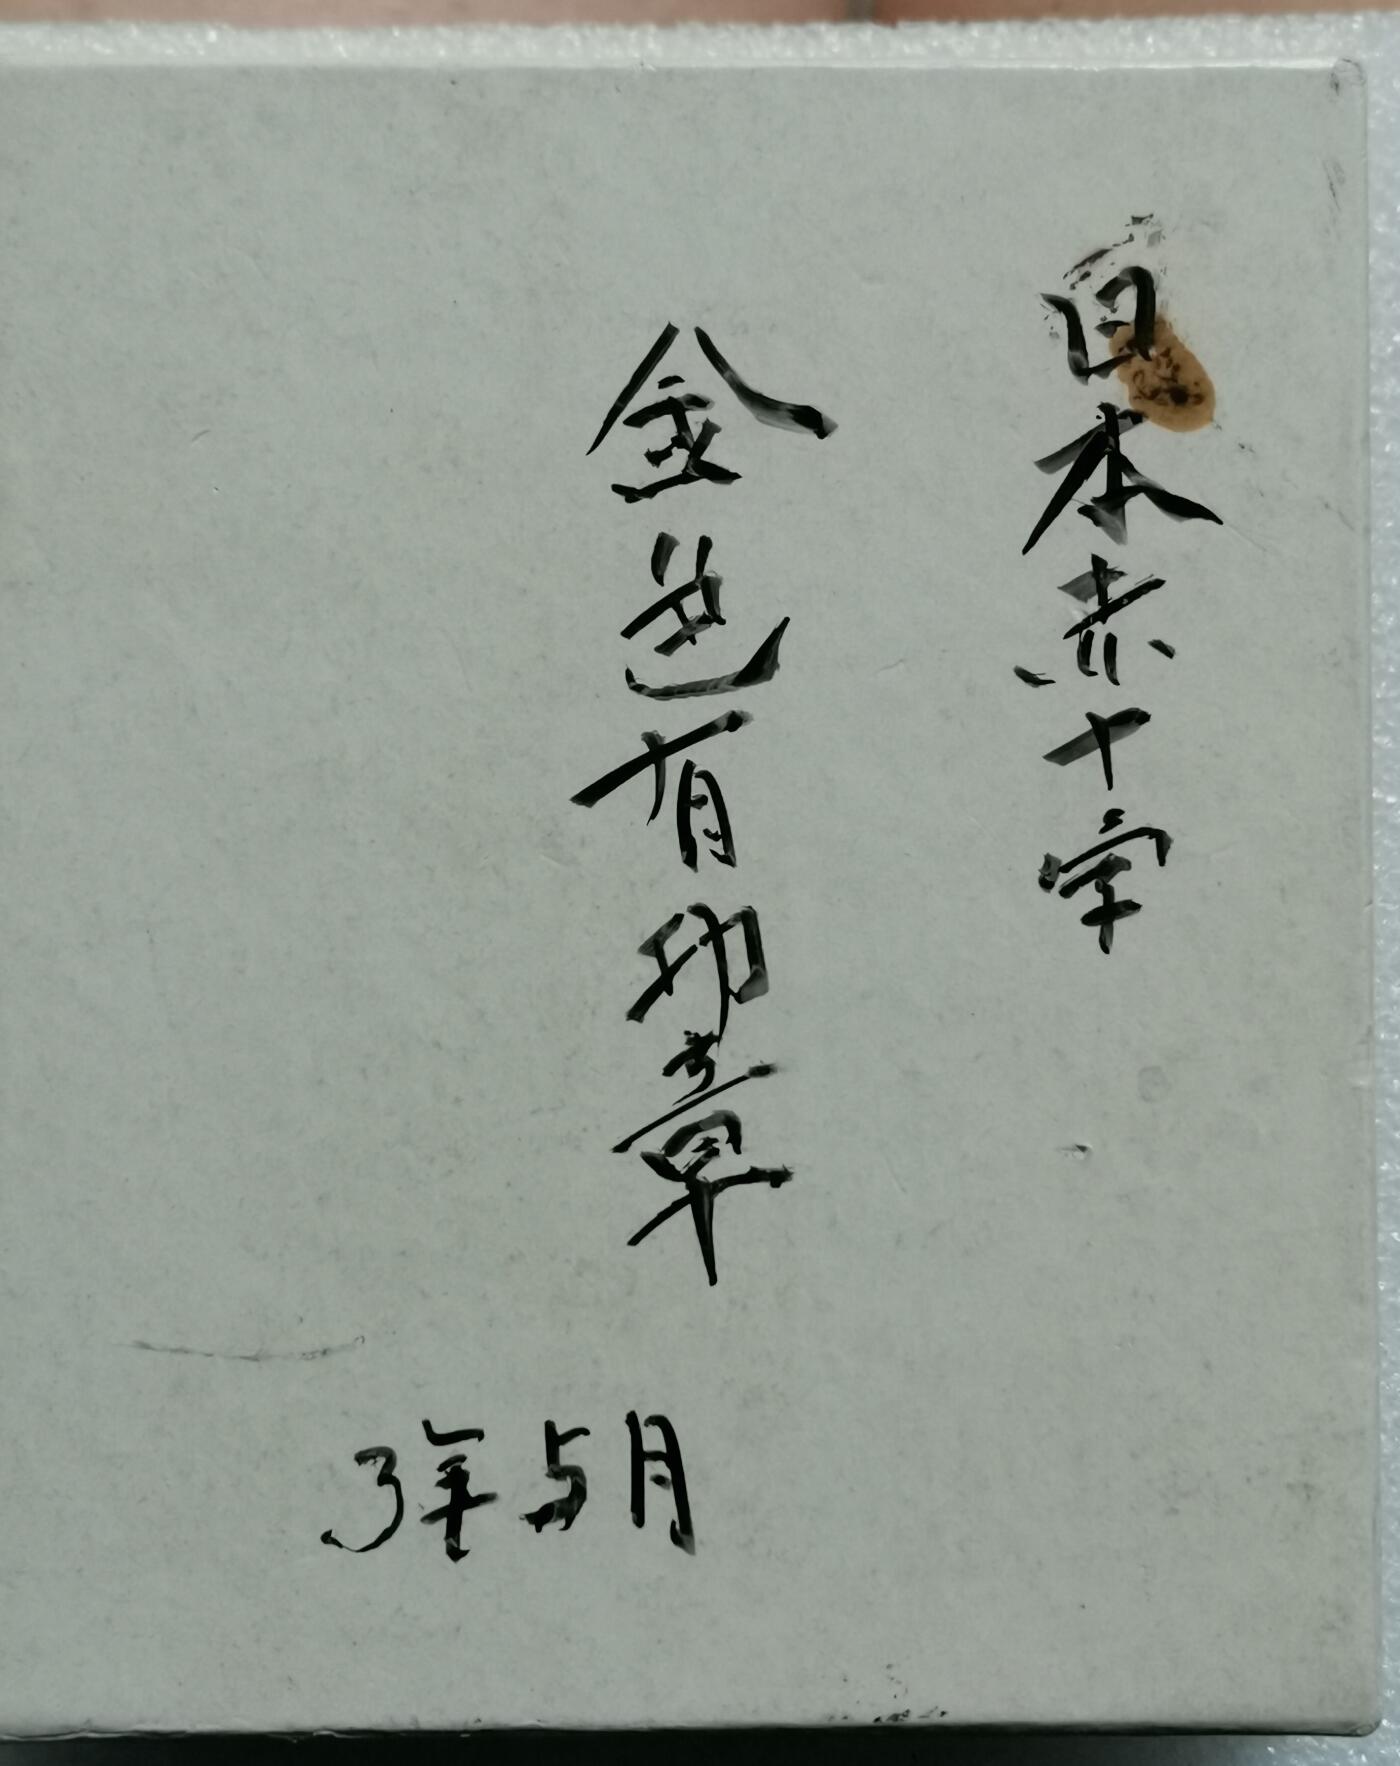 日本赤十字
金色有功章
3年5月